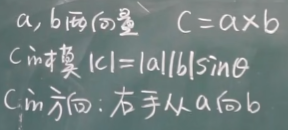 a,b两向量 C=a×b
C的模 |c|=|a||b|sinθ
C的方向:右手从a向b